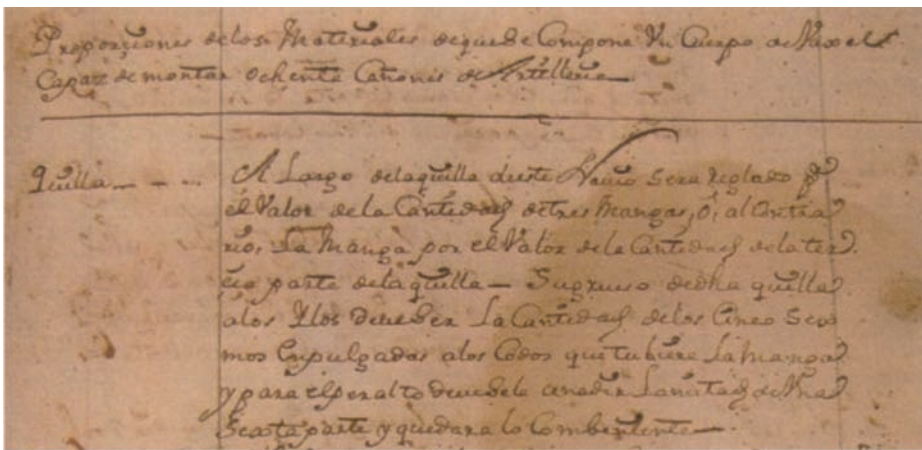 Proporçiones delos Materiales deque se Compone Vn Cuerpo de Vaxel
Capaz de montar Ochenta Cañones de Artilleria
Quilla
El Largo dela quilla deste Navio sera Reglado por
el Valor dela Cantidad de tres mangas, ó, al Contra
rio, La manga por el Valor dela Cantidad dela ter
cia parte dela quilla — Su grueso de dha quilla
alos deue ser La Cantidad delos Cinco Sexmos
mos En pulgadas alos Codos que tubiere La manga
y para el peralto deuesele anadir La mitad de Vna
Sexta parte y quedara lo Combeniente —